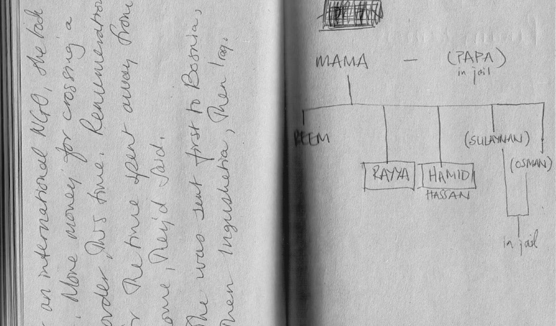 an international NGO, she took
More money for crossing a
order this time. Renumeration
r the time spent away from
ome, they'd said.
She was sent first to Bosnia,
then Ingushetia, then Iraq.
MAMA — (PAPA)
in jail
REEM (SULAYMAN)
(OSMAN)
RAYYA HAMID
HASSAN
in jail